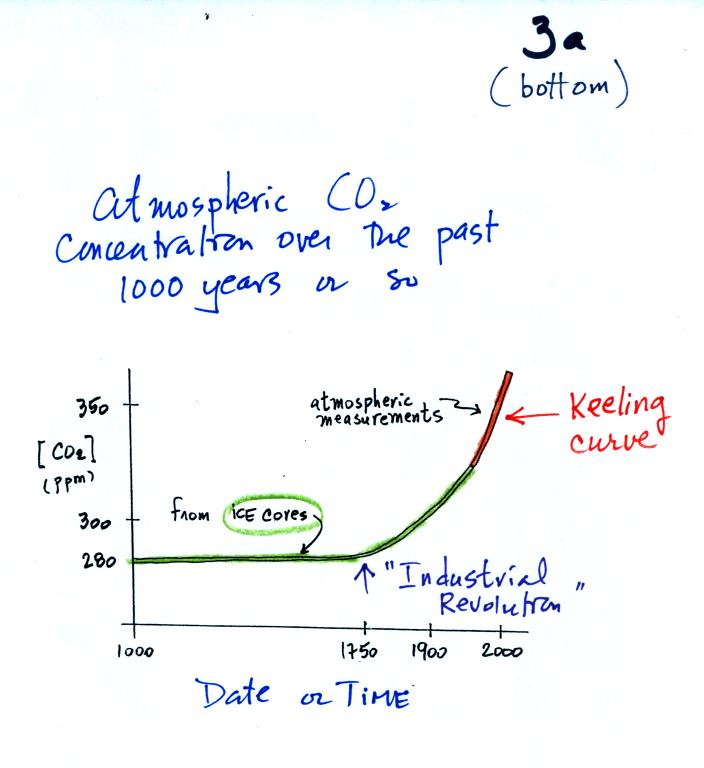 3a
(bottom)
Atmospheric CO₂
Concentration over the past
1000 years or so
350
atmospheric
measurements
Keeling
curve
[CO₂]
(ppm)
from ICE cores
300
280
"Industrial
Revolution"
1000
1750
1900
2000
Date or TIME